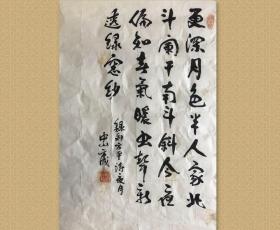 更深月色半人家北
斗阑干南斗斜今夜
偏知春气暖虫声新
透绿窗纱
录刘方平诗夜月